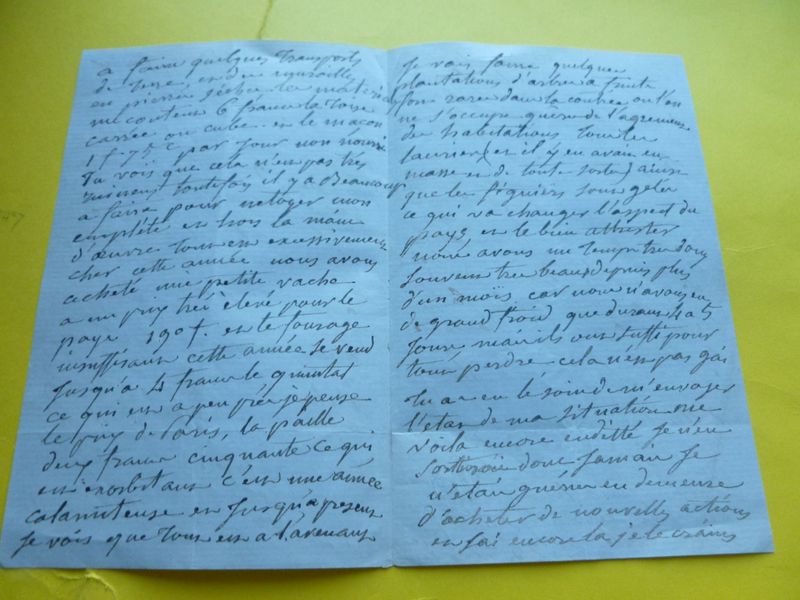 a faire quelques transports
de terre, et des murailles
en pierres sèches les materiaux
me coutent 6 francs la toise
carrée ou cube. et le maçon
1 f. 75 c par jour non nourri
Tu vois que cela n'est pas très
toutefois il y a Beaucoup
a faire pour netoyer mon
en bois la main
d'œuvre tout est excessivement
cher cette année nous avons
acheté une petite vache
a un prix très élevé pour le
pays 190 f. et le fourage
insuffisant cette année se vend
jusqu'a 4 francs le quintal
ce qui est a peu près je pense
le prix de Paris, la paille
deux francs cinquante ce qui
est exorbitant c'est une année
calamiteuse et jusqu'a present
je vois que tout est a l'avenant
je vais faire quelques
plantations d'arbres a fruits
fort rares dans la contrée ou l'on
ne s'occupe guère de l'agrement
des habitations tous les
lauriers (et il y en avait en
masse et de toute sorte) ainsi
que les figuiers sont gelés
ce qui va changer l'aspect du
pays et le bien attrister
nous avons un temps tres doux
souvent tres beau depuis plus
d'un mois, car nous n'avons eu
de grand froid que durant 4 a 5
jours mais ils ont suffi pour
tout perdre cela n'est pas gai
tu as eu le soin de m'envoyer
l'etat de ma situation me
voila encore endetté je n'en
sortirai donc jamais je
n'etais guère en demeure
d'acheter de nouvelles actions
et j'ai encore la je le crains